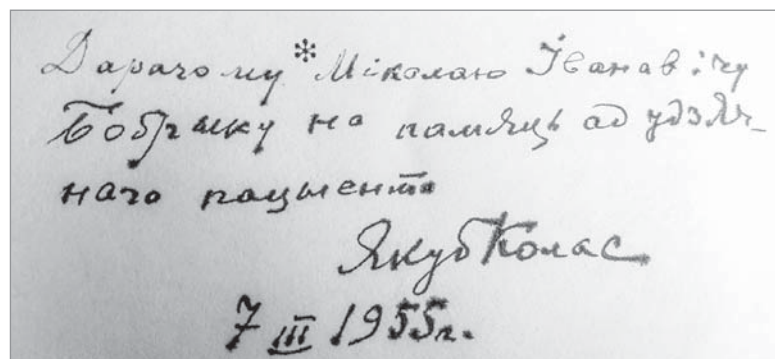 Дарагому * Міколаю Іванавічу
Бобрыку на памяць ад удзяч-
нага пацыента
Якуб Колас
7 III 1955 г.